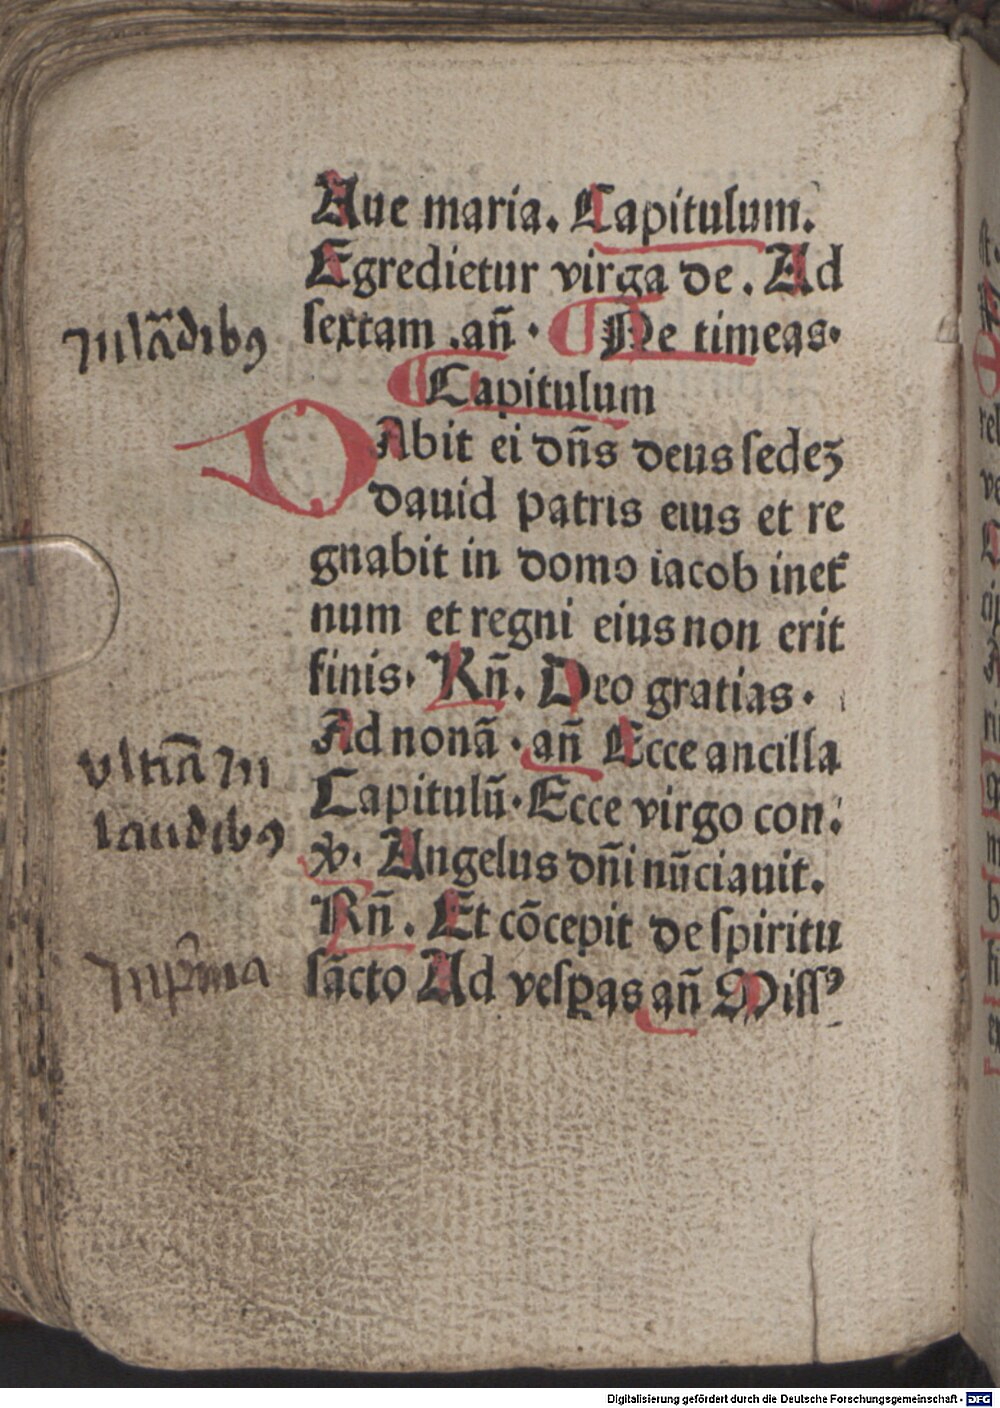 Aue maria. Capitulum.
Egredietur virga de. Ad
sextam .añ. Ne timeas.
Jnlādibꝰ
Capitulum
DAbit ei dñs deus sedeʒ
dauid patris eius et re
gnabit in domo iacob inet̃
num et regni eius non erit
finis. Rñ. Deo gratias.
Ad nonā. añ Ecce ancilla
vltiā Jn
Capitulū. Ecce virgo con:
laudibꝰ
℣. Angelus dñi nūciauit.
Rñ. Et cōcepit de spiritu
sācto Ad vesꝑas añ Missꝰ
Jnpͥma
Digitalisierung gefördert durch die Deutsche Forschungsgemeinschaft - DFG